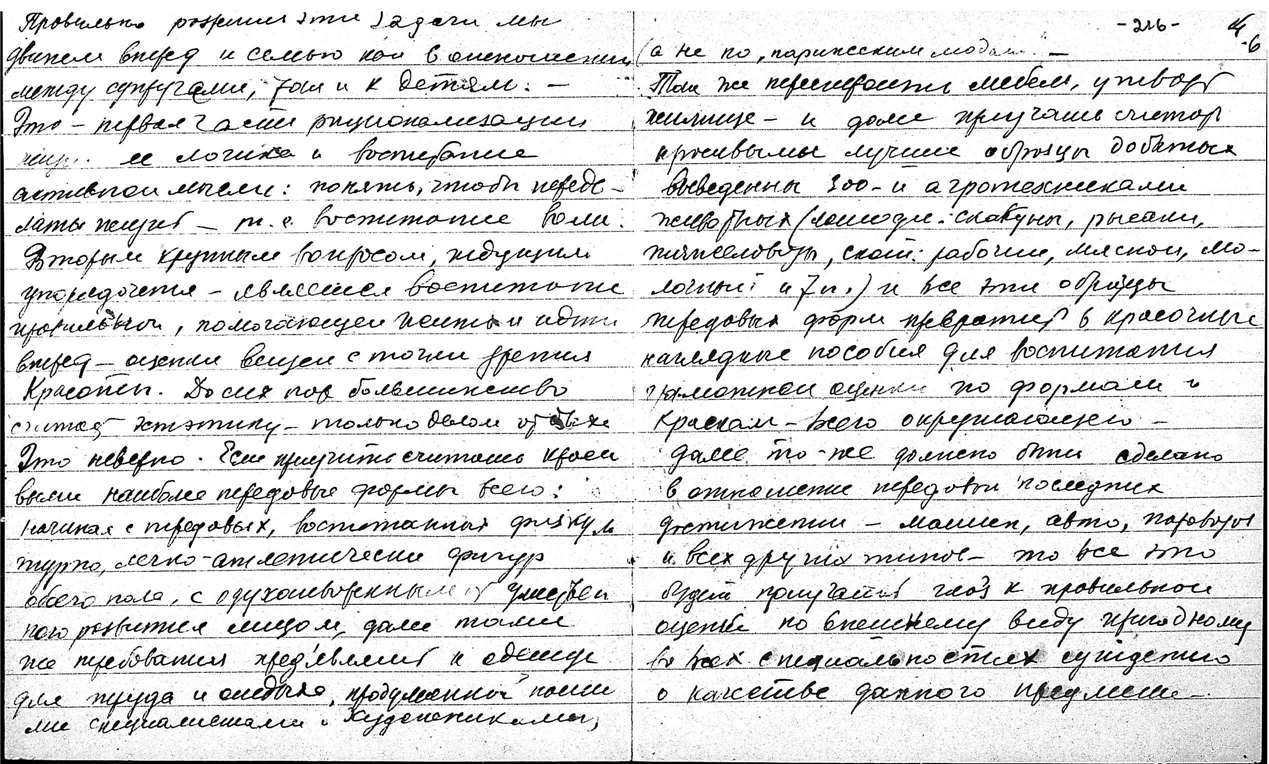 Правильно розрешив эти задачи мы
двинем вперед и семью как в отношении
между супругами, так и к детям. –
Это – первая часть рационализации
ее логика и воспитание
активной мысли: понять, чтобы переде-
лать жизнь – т.е. воспитание воли.
Вторым крупным вопросом, ждущим
упорядочения – является воспитание
правильной, помогающей жить и идти
вперед – оценки вещей с точки зрения
Красоты. До сих пор большинство
считает эстэтику – только делом
Это неверно. Если приучить считать краси
выми наиболее передовые формы всего:
начиная с передовых, воспитанных физкуль
турно, легко-атлетически фигур
обоего пола, с одухотворенным от умствен
ного развития лицом, далее такие
же требования предъявлять к одежде
для труда и отдыха, продуманной нашими
специалистами и художниками,
-226-
6
(а не по парижским модам. –
Так же пересмотреть мебель, утварь
жилище – и далее приучать считать
красивыми лучшие образцы добытых
выведенных зоо- и агротехниками
животных (лошади: скакуны, рысаки,
тяжеловозы, скот: рабочий, мясной, мо-
лочный и т.п.) и все эти образцы
передовых форм превратить в красочные
наглядные пособия для воспитания
грамотной оценки по формам и
краскам – всего окружающего –
далее то-же должно быть сделано
в отношение передовых последних
достижений – машин, авто, паровозов
и всех других типов – то все это
будет приучать глаз к правильной
оценке по внешнему виду пригодному
во всех специальностях суждению
о качестве данного предмета –